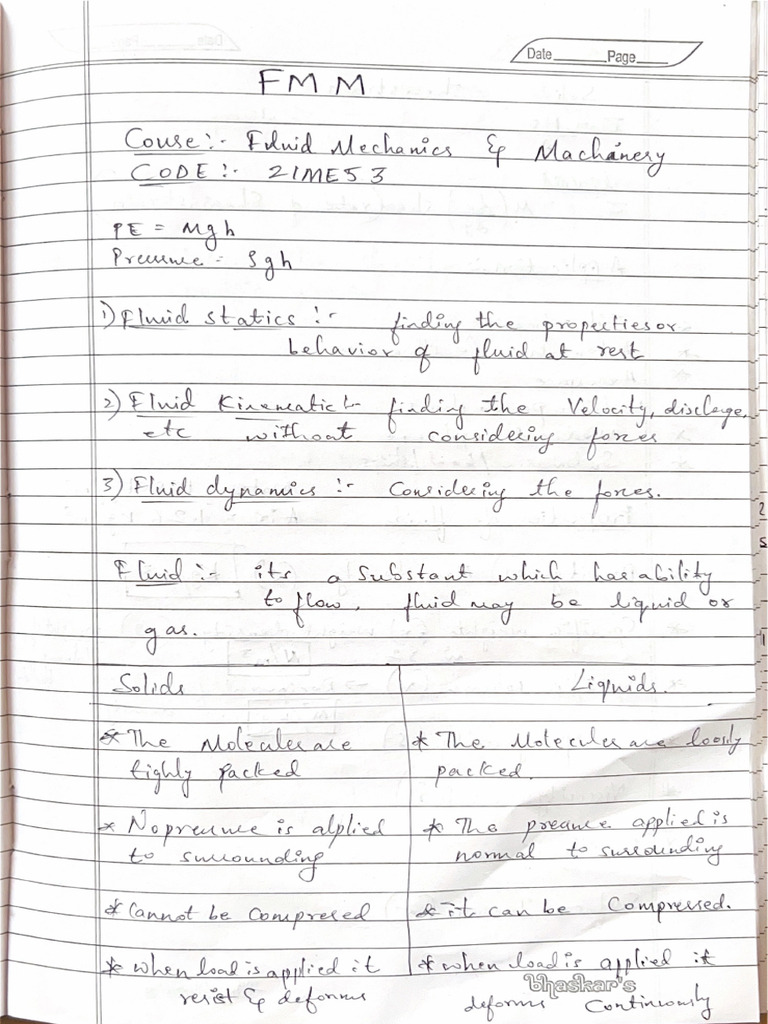 Date Page
FMM
Couse:- Fluid Mechanics & Machinery
CODE:- 21ME53
PE = Mgh
Pressure = ρgh
1) Fluid statics :- finding the properties or
behavior of fluid at rest
2) Fluid Kinematic :- finding the Velocity, discharge,
etc without considering forces
3) Fluid dynamics :- Considering the forces.
Fluid :- its a Substant which has ability
to flow, fluid may be liquid or
gas.
Solids Liquids.
* The Molecules are * The Molecules are loosly
tighly packed packed.
* No pressure is alplied * The pressure applied is
to surrounding normal to surrounding
* Cannot be Compresed * it can be Compressed.
* when load is applied it * when load is applied it
resist & deforms deforms Continuously
bhaskar's